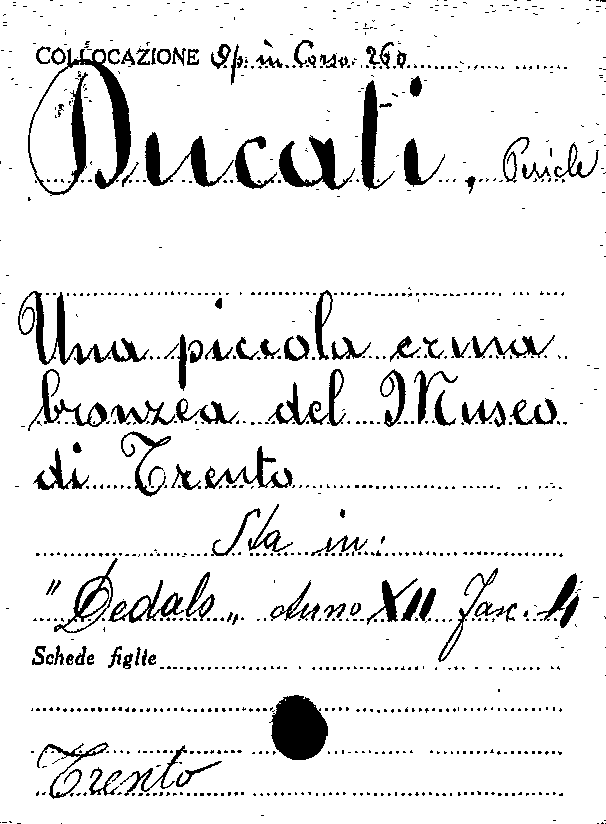 COLLOCAZIONE Op. in Corso 260
Ducati, Pericle
Una piccola erma
bronzea del Museo
di Trento
Sta in:
"Dedalo„ Anno XII Fasc. 4
Schede figlie
Trento